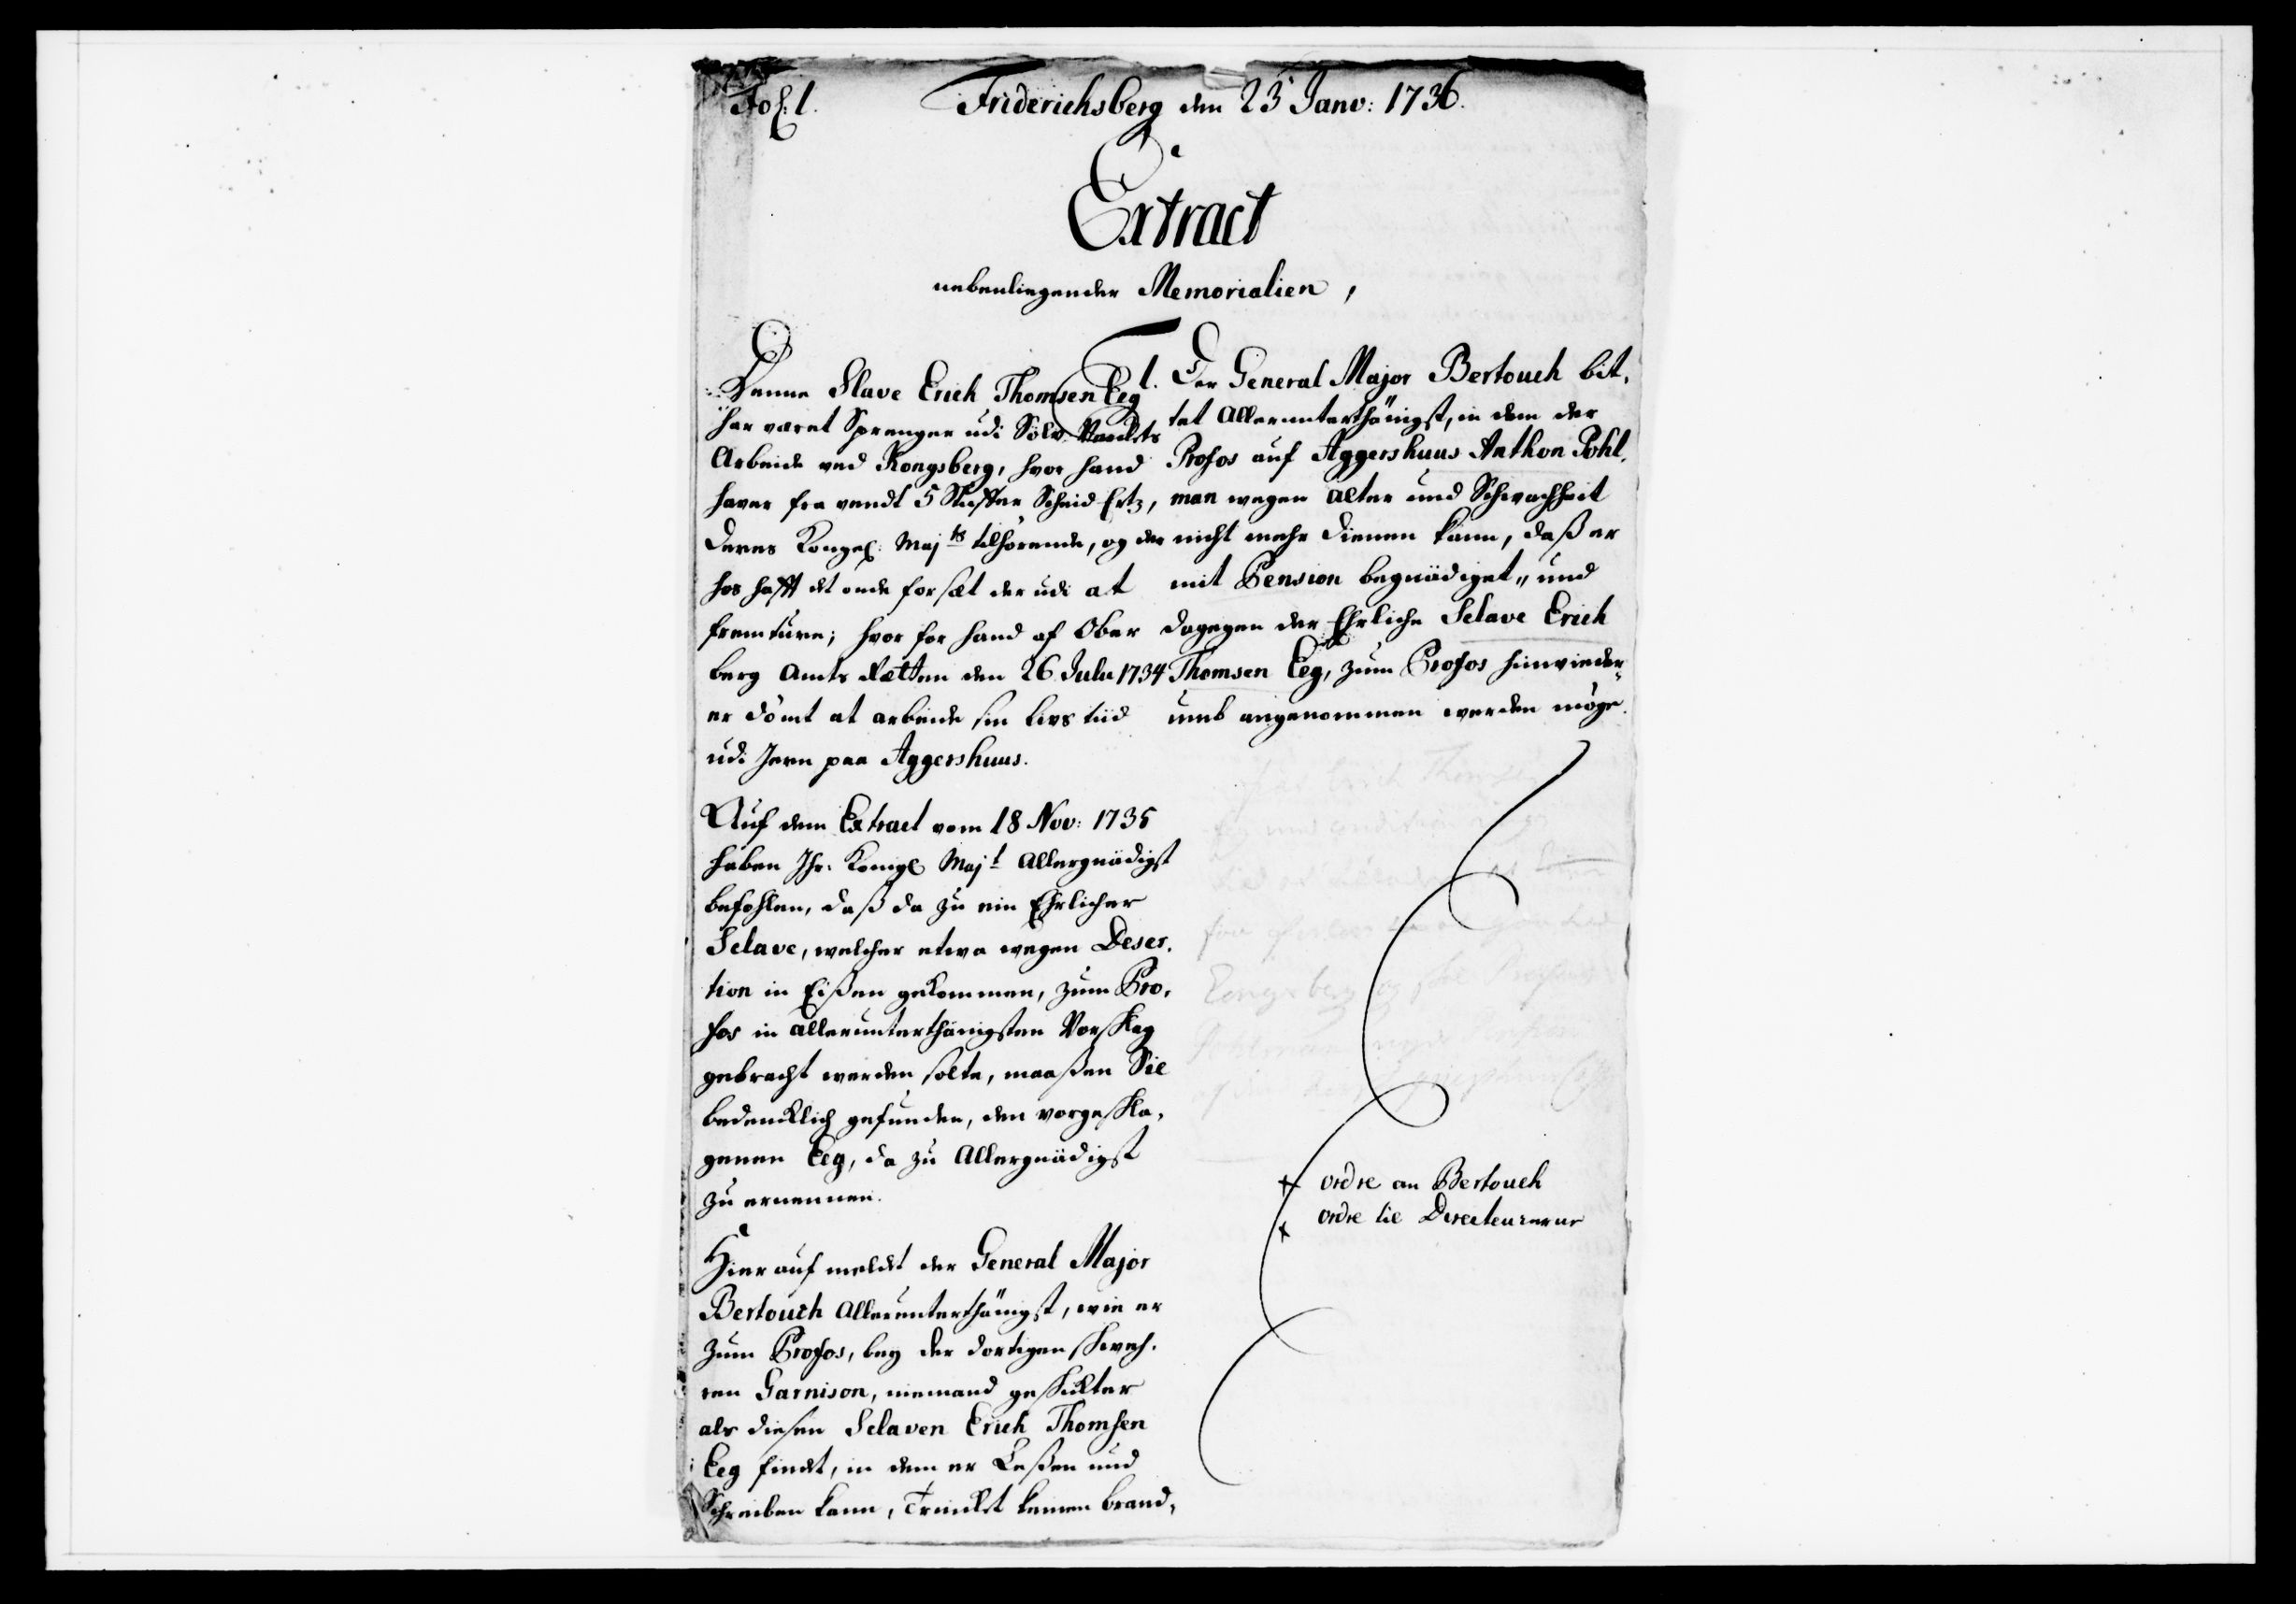 Fol. 1.
Friderichsberg den 23 Janv: 1736.
Extract
nebenliegender Memorialien,
1. Der General Major Bertouch bit,
tet Allerunterthänigst, in dem der
Profos auf Aggershuus Anthon Pohl,
man wegen Alter und Schwachheit
nicht mehr dienen kann, daß er
mit Pension begnädiget, und
dagegen der Ehrliche Sclave Erich
Thomsen Eeg, zum Profos hinwieder,
umb angenommen werden möge.
Denne Slave Erich Thomsen Eeg
har været Sprenger udi Sölv Værckets
Arbeide ved Kongsberg, hvor hand
haver fra vendt 5 Stuffer Scheid Ertz,
Deres Kongel: Maj ts tilhörende, og der
hos hafft et onde forsæt der udi at
fremture; hvor for hand af Ober
berg Amts Rætten den 26 Julii 1734
er dömt at arbeide sin livs tiid
udi Jern paa Aggershuus.
Auf dem Extract vom 18 Nov: 1735
haben Ihr. Königl Maj t Allergnädigst
befohlen, daß da zu ein Ehrlicher
Sclave, welcher etwa wegen Deser,
tion in Eißen gekommen, zum Pro,
fos in allerunterthänigsten Vorschlag
gebracht werden solte, maaßen Sie
bedencklich gefunden, den vorgeschla,
genen Eeg, da zu Allergnädigst
zu ernennen.
Hier auf meldet der General Major
Bertouch Allerunterthänigst, wie er
zum Profos, bey der dortigen schweh,
ren Garnison, niemand geschickter
als diesen Sclaven Erich Thomsen
Eeg findet, in dem er Leßen und
Schreiben kann, Trincket keinen brand,
ordre an Bertouch
ordre til Directeurerne